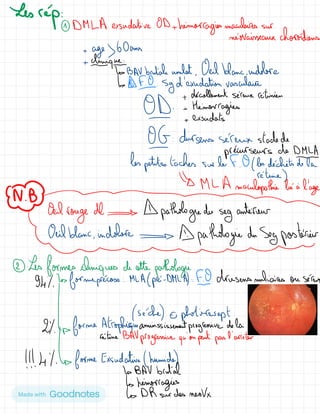 Les rép:
① DMLA exsudative OD + hémorragies maculaires sur
néovaisseaux choroïdiens
+ age > 60 ans
+ clinique:
BAV brutale unilat, Oeil blanc, indolore
FO Sg d'exsudation vasculaire
OD
+ décollement séreux rétinien
+ Hémorragies
+ exsudats
OG drusens séreux stade de
précurseurs de DMLA
les petites taches sur le F.O (les déchets de la
rétine)
MLA maculopathie lié à l'age
N.B
Oeil rouge dl ⟹ pathologie du seg antérieur
Oeil blanc, indolore ⟹ pathologie du Seg postérieur
② Les formes cliniques de cette pathologie
94% forme précoce MLA (pré-DMLA): FO drusens miliaires ou séreux
(sèche)
2% forme Atrophique amincissement progressive de la
rétine BAV progressive
!!! 4% forme Exsudative (humide)
BAV brutal
hémorragies
DR sur des neoVx
Made with Goodnotes